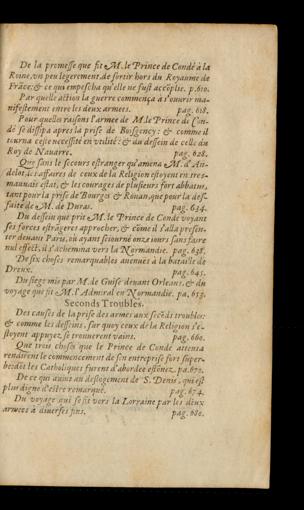 De la promesse que fit M. le Prince de Condé à la
Roine, vn peu legerement, de sortir hors du Royaume de
Frãce: & ce qui empescha qu'elle ne fust accõplie. p.610.
Par quelle action la guerre commença à s'ouurir ma-
nifestement entre les deux armees. pag. 618.
Pour quelles raisons l'armee de M. le Prince de Con-
dé se dissipa apres la prise de Boisgency: & comme il
tourna ceste necessité en vtilité: & du dessein de celle du
Roy de Nauarre. pag. 628.
Que sans le secours estranger qu'amena M. d'An-
delot, les affaires de ceux de la Religion estoyent en tres-
mauuais estat, & les courages de plusieurs fort abbatus,
tant pour la prise de Bourges & Rouan, que pour la des-
faite de M. de Duras. pag. 634.
Du dessein que prit M. le Prince de Condé voyant
ses forces estrãgeres approcher, & cõme il s'alla presen-
ter deuant Paris, où ayant seiourné onze iours sans faire
nul effect, il s'achemina vers la Normandie. pag. 638.
De six choses remarquables auenues à la bataille de
Dreux. pag. 645.
Du siege mis par M. de Guise deuant Orleans, & du
voyage que fit M. l'Admiral en Normandie. pa. 653.
Seconds Troubles.
Des causes de la prise des armes aux secõds troubles:
& comme les desseins, sur quoy ceux de la Religion s'e-
stoyent appuyez se trouuerent vains. pag. 660.
Que trois choses que le Prince de Condé attenta
rendirent le commencement de son entreprise fort super-
be: dõt les Catholiques furent d'abordee estõnez. pa. 670.
De ce qui auint au deslogement de S. Denis, qui est
plus digne d'estre remarqué. pag. 674.
Du voyage qui se fit vers la Lorraine par les deux
armees à diuerses fins. pag. 680.